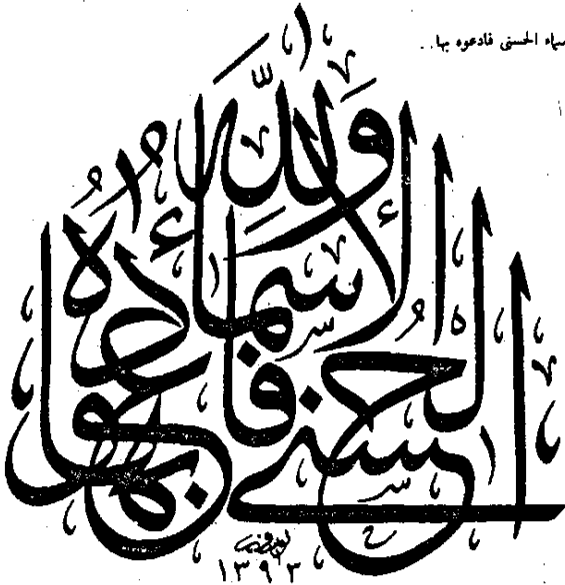 سماء الحسنى فادعوه بها..
ولله الأسماء الحسنى فادعوه بها
١٣٩٣